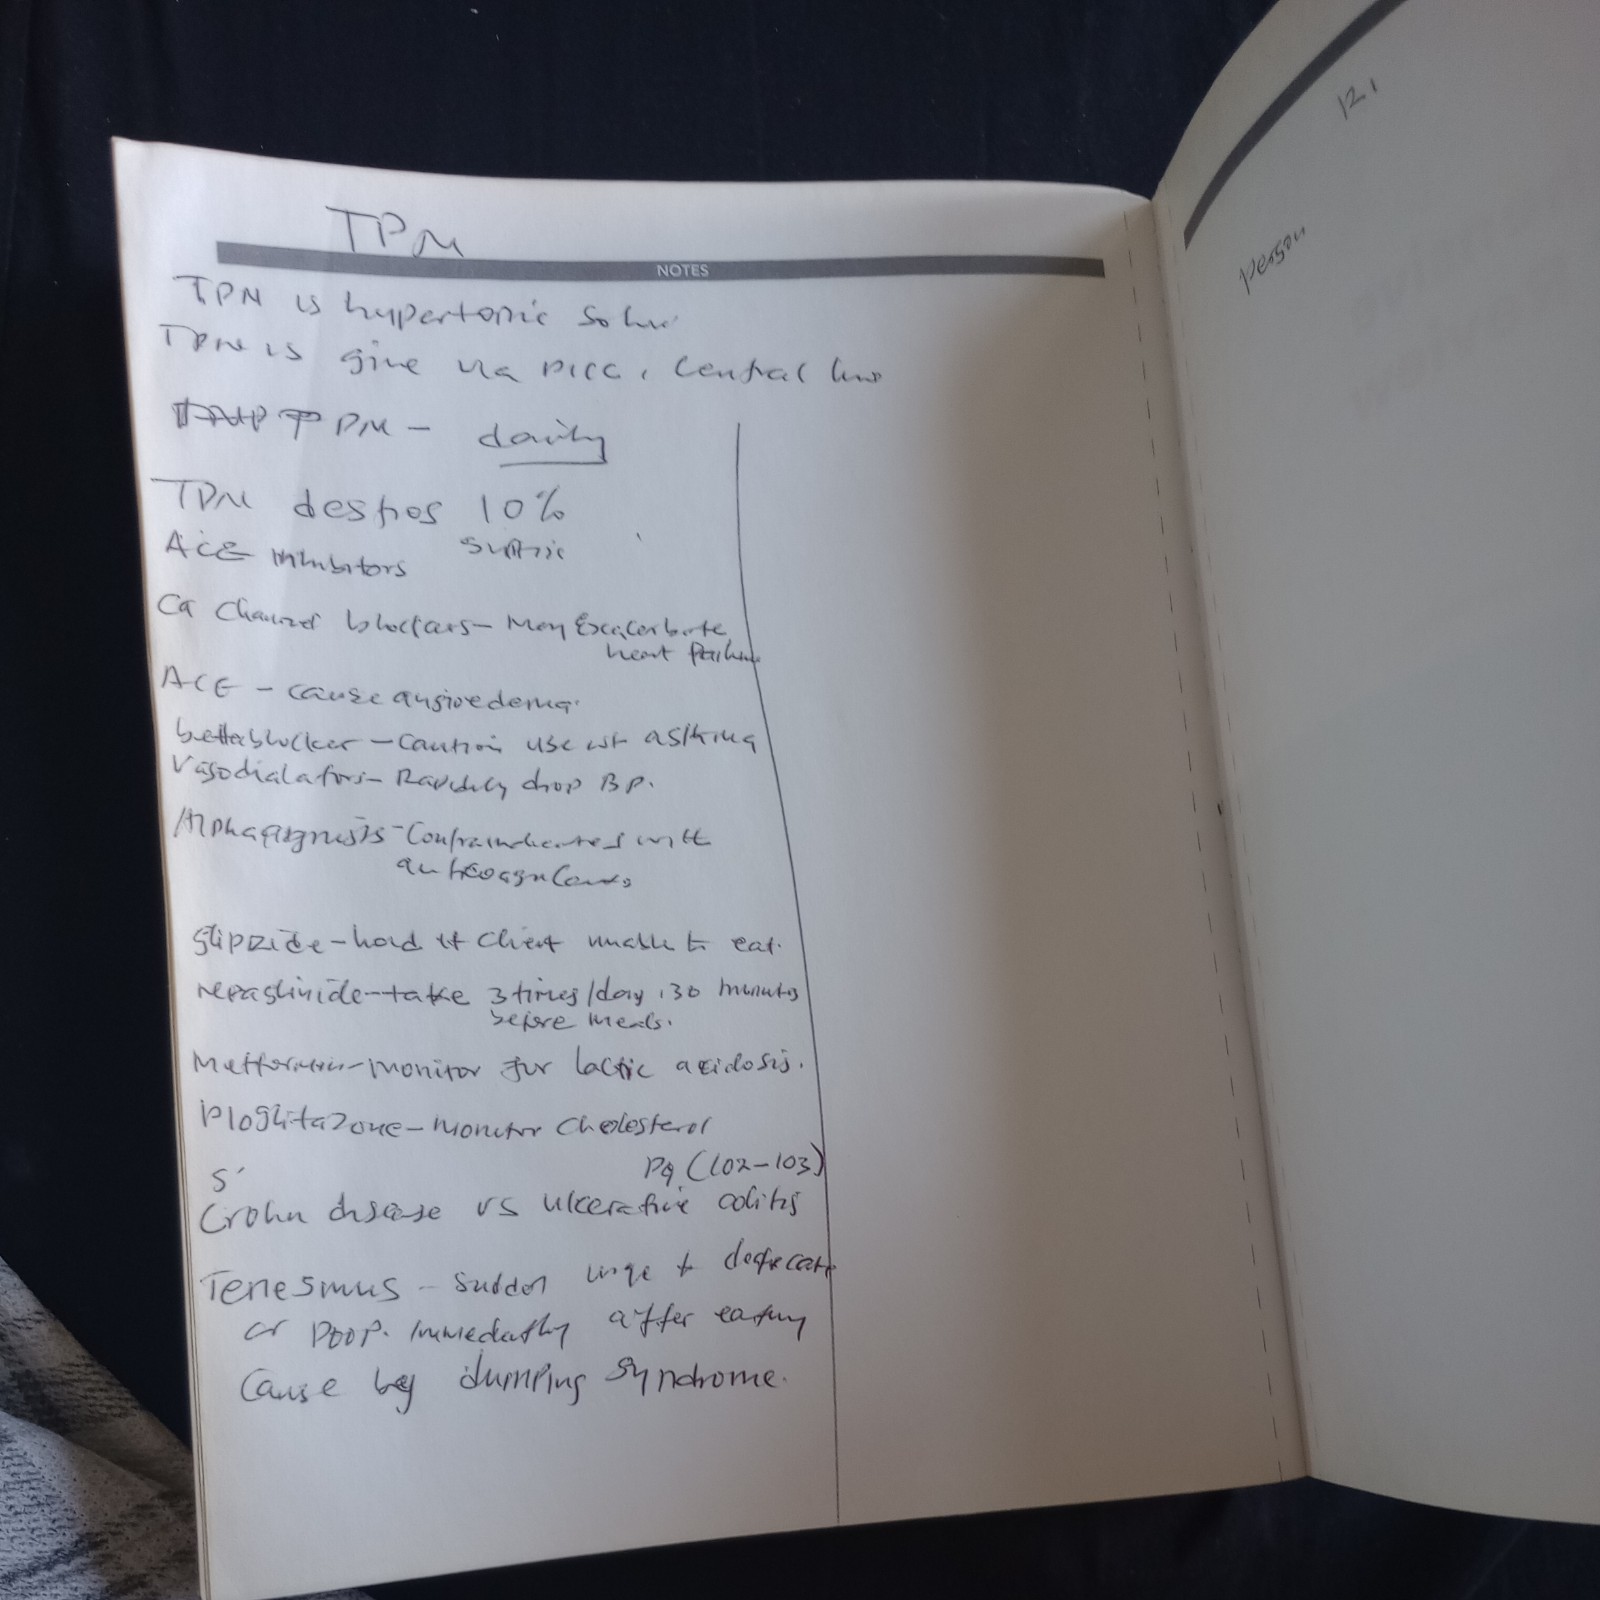 TPN
NOTES
TPN is hypertonic
TPN is give via PICC, Central line
TPN - daily
TPN 10%
ACE inhibitors
Ca Channel blockers - May Exacerbate
heart failure
ACE - cause angioedema.
betta blocker - Caution use wt asthma
Vasodialators - Rapidly drop BP.
Contraindicated with
anticoagulants
glipizide - hold if Client unable to eat.
repaglinide - take 3 times/day, 30 minutes
before meals.
Metformin - monitor for lactic acidosis.
Pioglitazone - monitor cholesterol
S'
Pg (102-103)
Crohn disease vs ulcerative colitis
Tenesmus - sudden urge to
or poop. Immediately after eating
Cause by dumping syndrome.
121
person